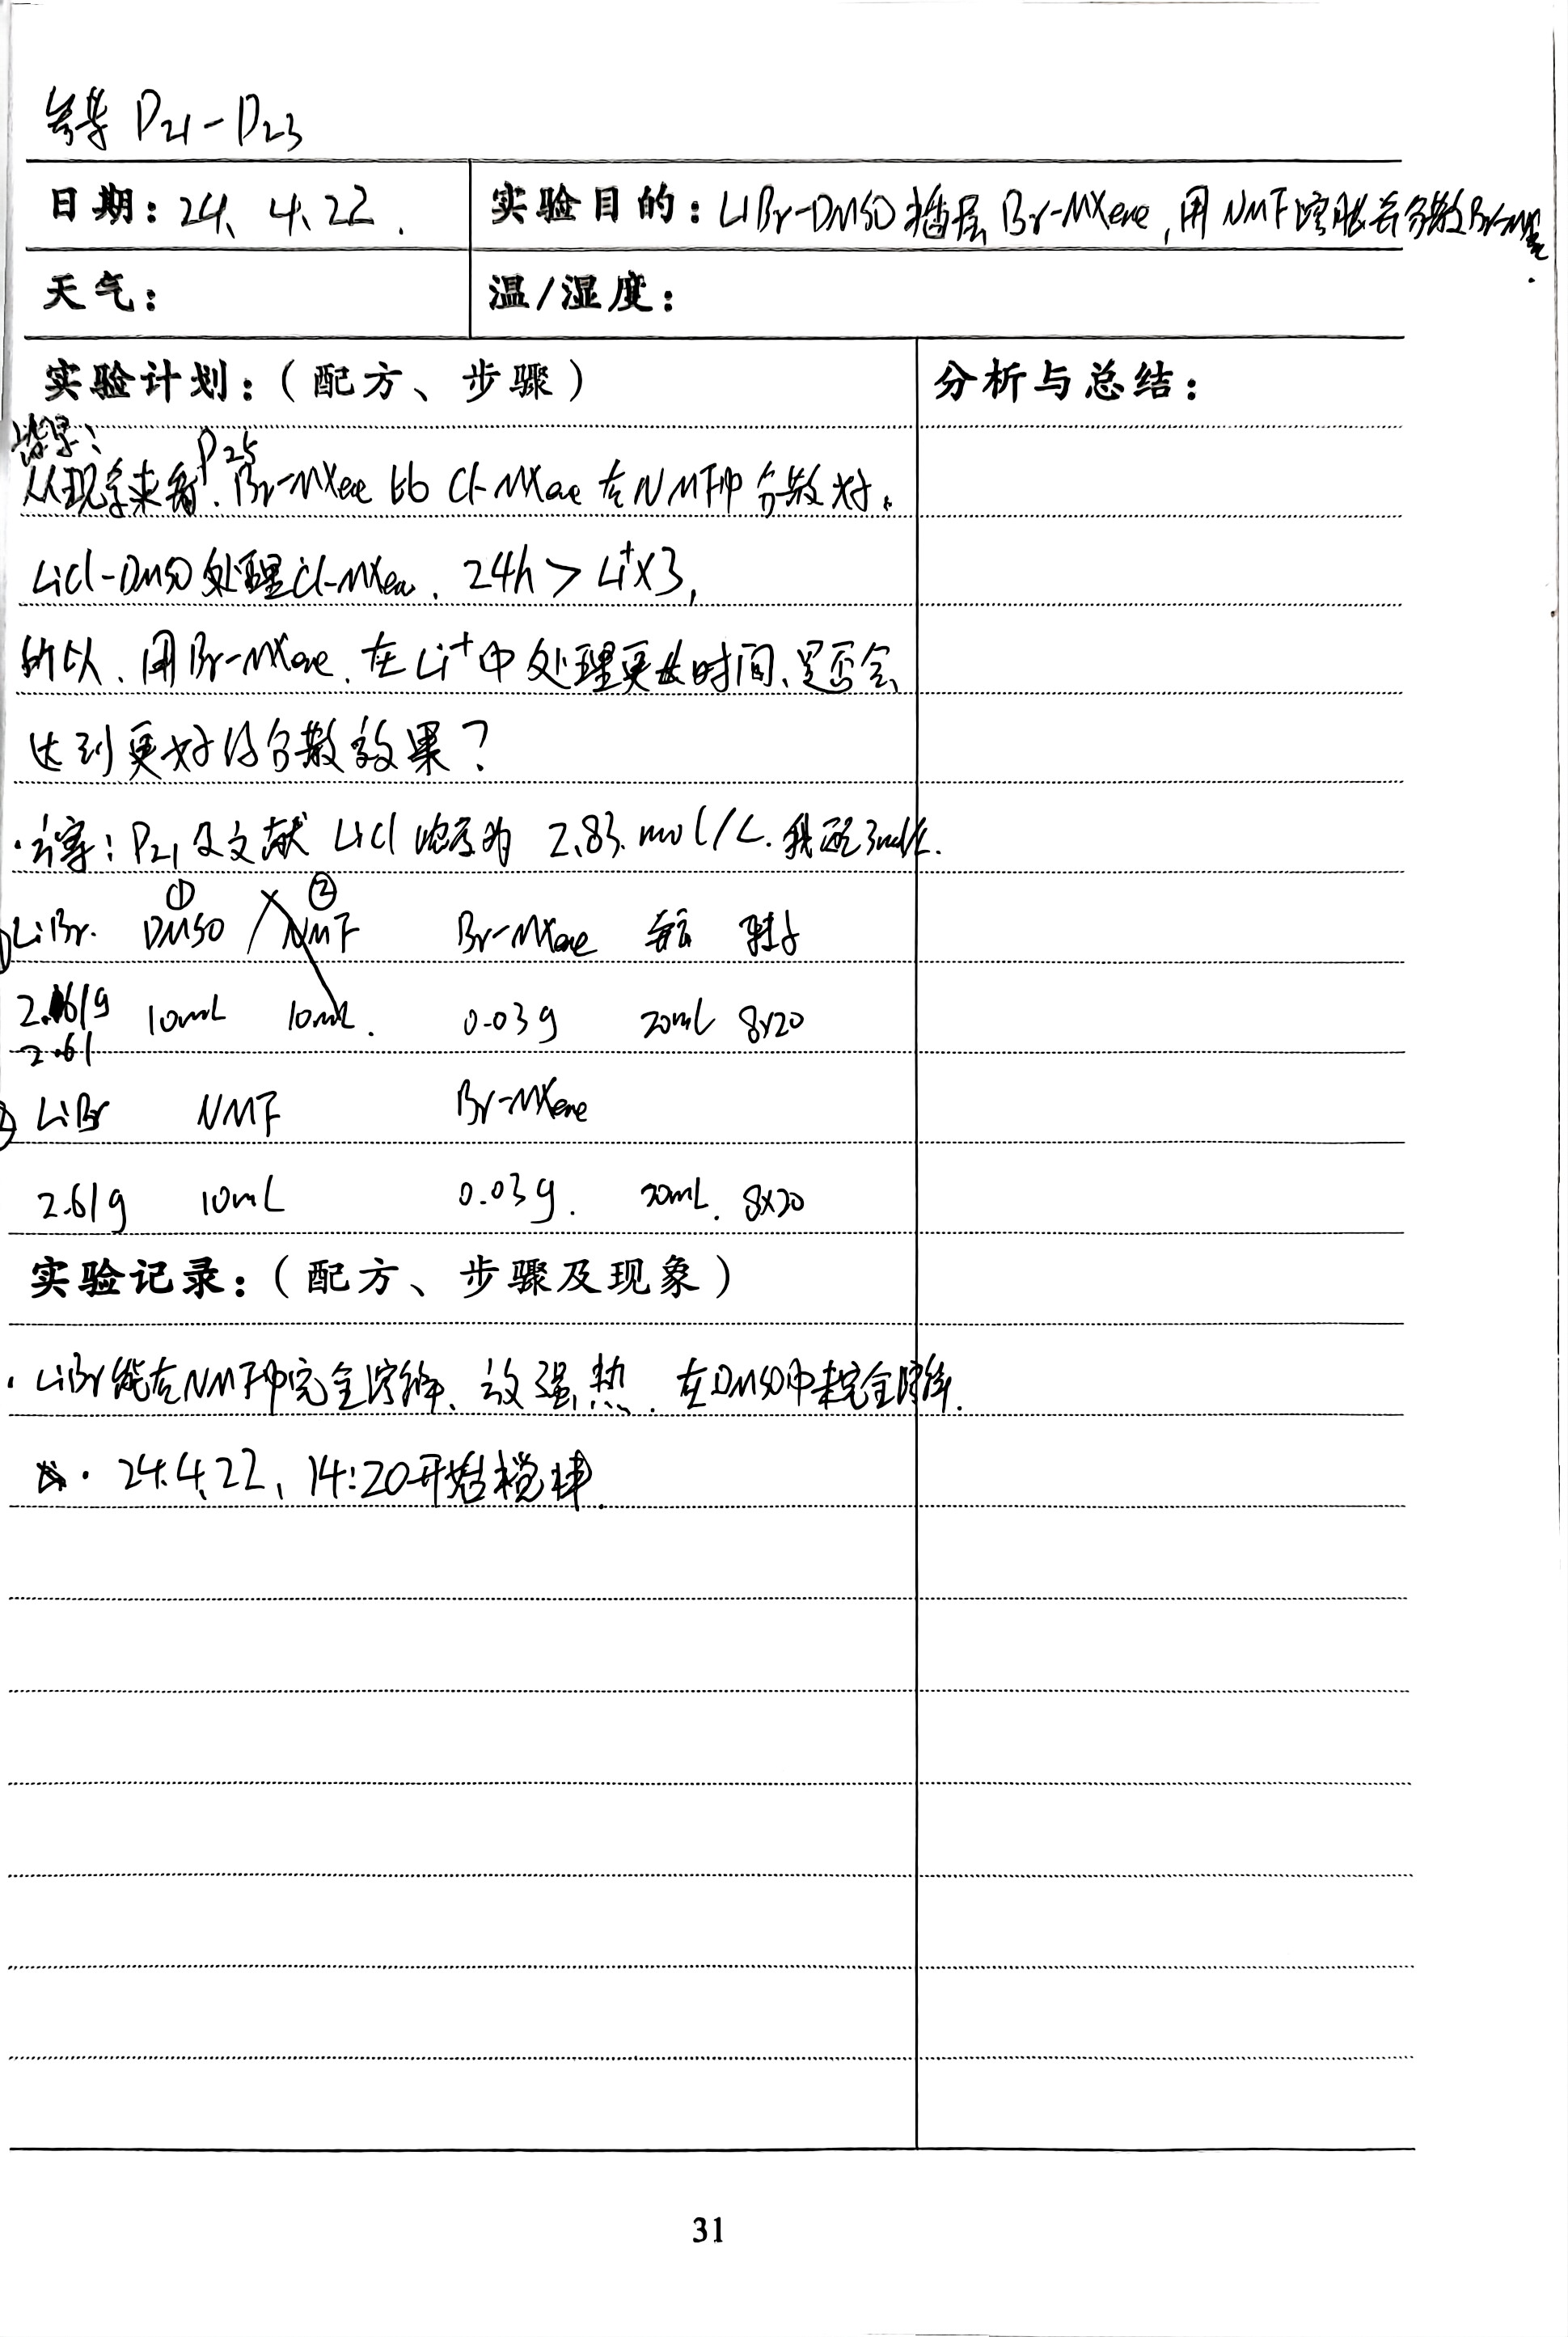 参考 P21-P23
日期: 24. 4. 22.
实验目的: LiBr-DMSO插层 Br-MXene, 用 NMF溶胀并分散Br-MXene.
天气:
温/湿度:
实验计划:(配方、步骤)
分析与总结:
背景:
P25
从现象来看. Br-MXene 比 Cl-MXene 在NMF中 分散好.
LiCl-DMSO处理Cl-MXene. 24h > Li⁺×3,
所以、用Br-MXene. 在Li⁺中处理更长时间、是否会
达到更好的分散效果?
·方案: P21及文献 LiCl 浓度为 2.83. mol/L. 我配3mol/L.
① ②
① LiBr. DMSO / NMF Br-MXene 转子
2.61g 10mL 10mL. 0.03g 20mL 8×20
2.61
② LiBr NMF Br-MXene
2.61g 10mL 0.03g. 20mL. 8×20
实验记录:(配方、步骤及现象)
· LiBr能在NMF中完全溶解、放强热. 在DMSO中未完全溶解.
· 24.4.22, 14:20开始搅拌.
31